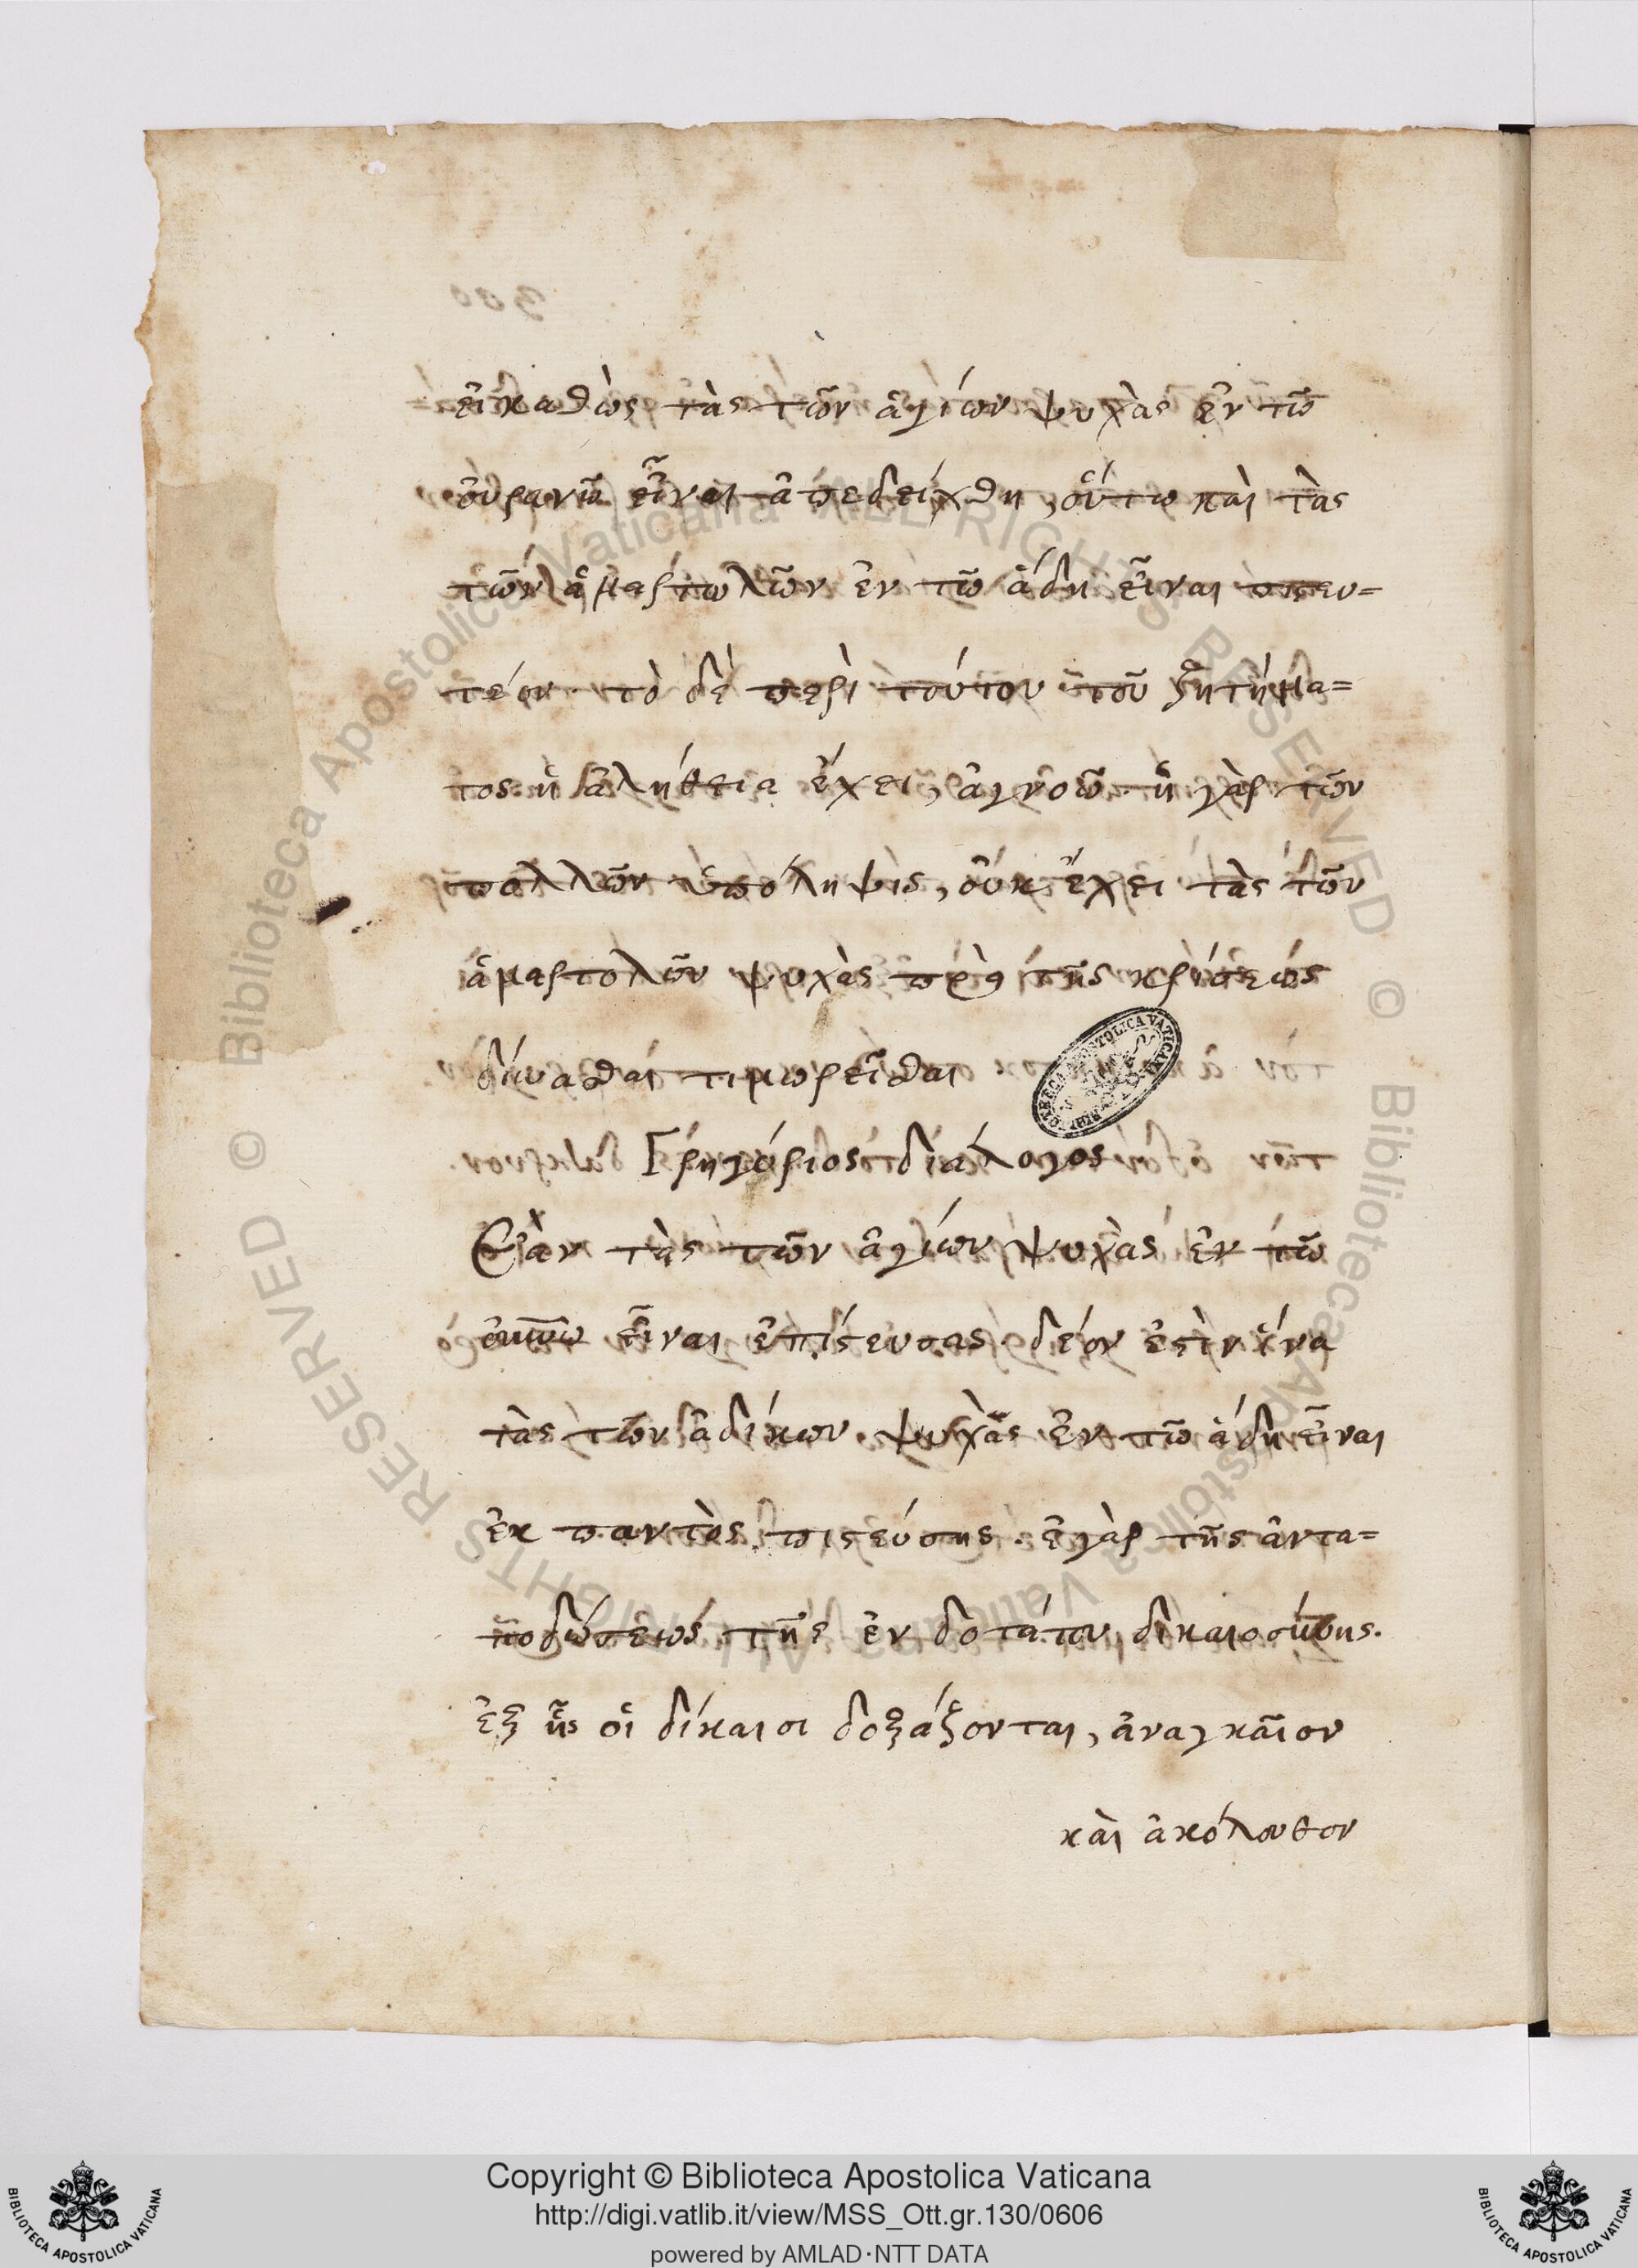 εἰ καθὼς τὰς τῶν ἁγίων ψυχὰς ἐν τῶ
οὐρανῶ εἶναι ἀπεδείχθη, οὕτω καὶ τὰς
τῶν ἁμαρτωλῶν ἐν τῶ ἅδη εἶναι πιστευ=
τέον. τὸ δὲ περὶ τούτου τοῦ ζητήμα=
τος ἡ ἀλήθεια ἔχει, ἀγνοῶ. ἡ γὰρ τῶν
πολλῶν ὑπόληψις, οὐκ ἔχει τὰς τῶν
ἁμαρτολῶν ψυχὰς πρὸ τῆς κρίσεως
δύνασθαι τιμωρεῖσθαι
Γρηγόριος διάλογος
Ἐὰν τὰς τῶν ἁγίων ψυχὰς ἐν τῶ
οὐνῶ εἶναι ἐπίστευσας. δέον ἐστὶν ἵνα
τὰς τῶν ἀδίκων ψυχὰς ἐν τῶ ἅδη εἶναι
ἐκ παντὸς πιστεύσης. ἐ γὰρ τῆς ἀντα=
ποδώσεως τῆς ἐνδοτάτου δικαιοσύνης.
ἐξ ἧς οἱ δίκαιοι δοξάζονται, ἀναγκαῖον
καὶ ἀκόλουθον
BIBLIOTECA APOSTOLICA VATICANA
© Biblioteca Apostolica Vaticana ALL RIGHTS RESERVED © Biblioteca Apostolica Vaticana ALL RIGHTS RESERVED
Copyright © Biblioteca Apostolica Vaticana
http://digi.vatlib.it/view/MSS_Ott.gr.130/0606
powered by AMLAD·NTT DATA
BIBLIOTECA APOSTOLICA VATICANA
BIBLIOTECA APOSTOLICA VATICANA